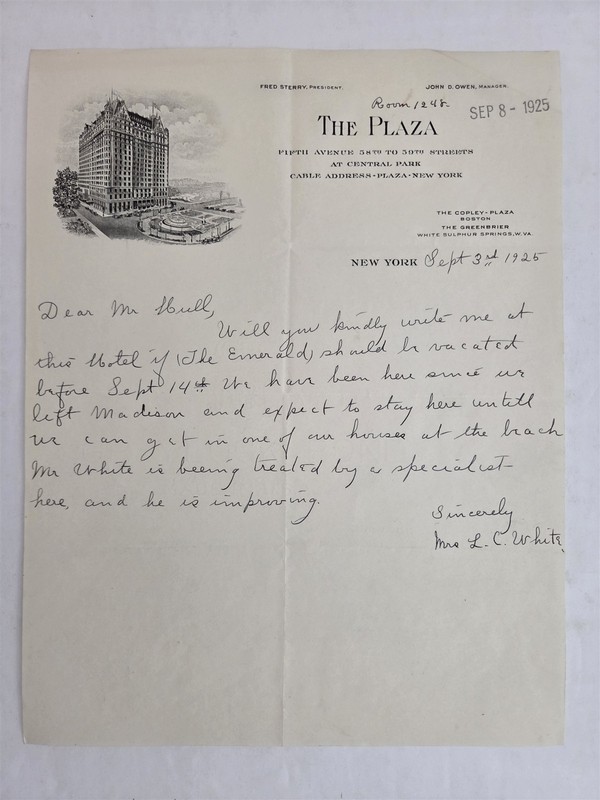 FRED STERRY, PRESIDENT.
JOHN D. OWEN, MANAGER.
Room 1248
SEP 8 - 1925
THE PLAZA
FIFTH AVENUE 58TH TO 59TH STREETS
AT CENTRAL PARK
CABLE ADDRESS-PLAZA-NEW YORK
THE COPLEY-PLAZA
BOSTON
THE GREENBRIER
WHITE SULPHUR SPRINGS, W.VA.
NEW YORK Sept 3rd 1925
Dear Mr Hull,
Will you kindly write me at
this Hotel if (The Emerald) should be vacated
before Sept 14th We have been here since we
left Madison and expect to stay here untill
we can get in one of our houses at the beach
Mr White is beeing treated by a specialist
here, and he is improving.
Sincerely
Mrs L. C. White.